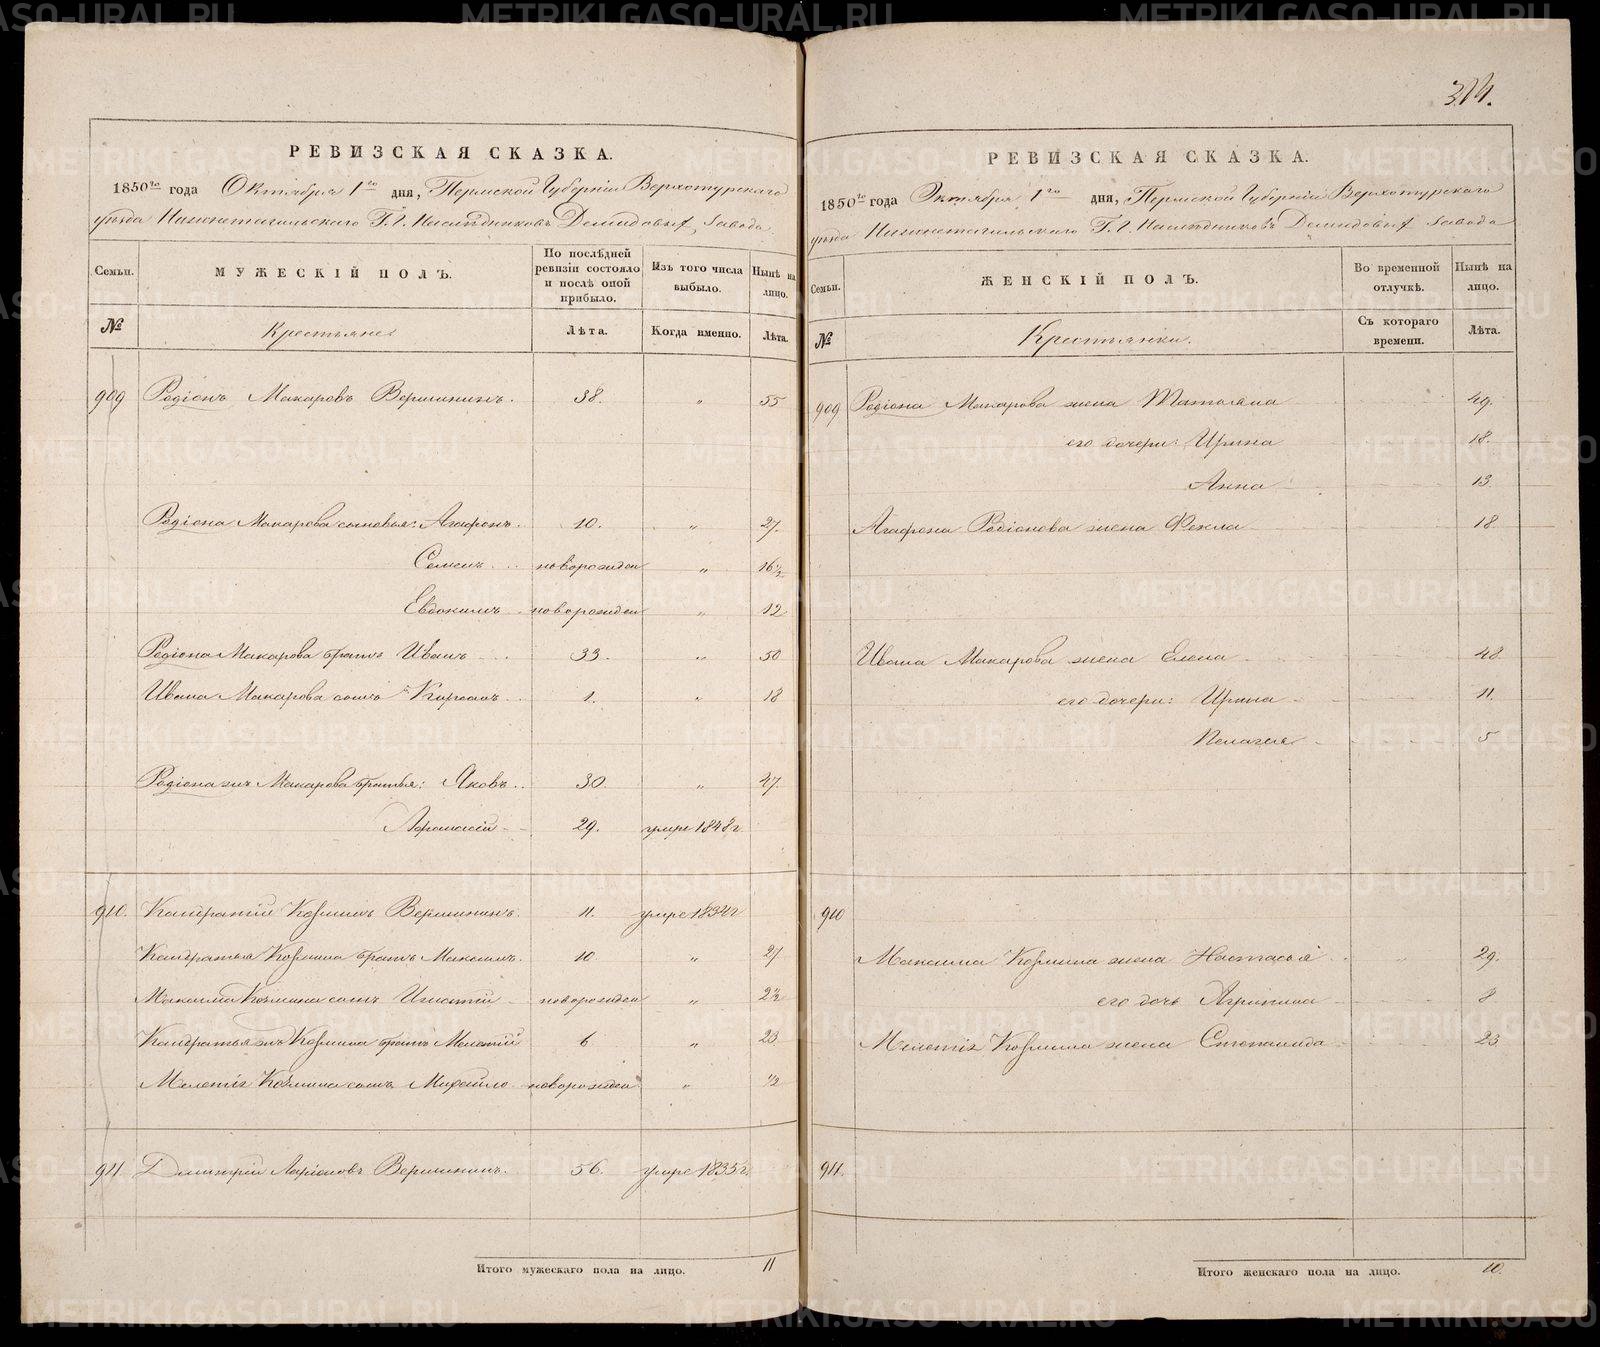 314.
РЕВИЗСКАЯ СКАЗКА.
1850го года Октября 1го дня, Пермской Губерніи Верхотурскаго
уѣзда Нижнетагильскаго Г.г. Наслѣдниковъ Демидовыхъ завода
Семьи. МУЖЕСКІЙ ПОЛЪ. По послѣдней ревизіи состояло и послѣ оной прибыло. Изъ того числа выбыло. Нынѣ на лицо.
№ Крестьяне Лѣта. Когда именно. Лѣта.
909 Родіонъ Макаровъ Вершининъ. 38. " 55
Родіона Макарова сыновья: Агафонъ. 10. " 27.
Семенъ новорожден " 16 1/2
Евдокимъ новорожден " 12
Родіона Макарова братъ Иванъ 33. " 50
Ивана Макарова сынъ Кирсанъ 1. " 18
Родіона жъ Макарова братья: Яковъ 30. " 47.
Афанасій 29. умре 1848 г
910. Кондратій Козминъ Вершининъ. 11. умре 1834 г
Кондратья Козмина братъ Максимъ. 10 " 27
Максима Козмина сынъ Игнатій новорожден " 2 1/2
Кондратья жъ Козмина братъ Мелетій 6 " 23
Мелетія Козмина сынъ Михайло новорожден " 1/2
911. Димитрій Ларіоновъ Вершининъ. 56. умре 1835 г.
Итого мужескаго пола на лицо. 11
РЕВИЗСКАЯ СКАЗКА.
1850го года Октября 1го дня, Пермской Губерніи Верхотурскаго
уѣзда Нижнетагильскаго Г.г. Наслѣдниковъ Демидовыхъ завода
Семьи. ЖЕНСКІЙ ПОЛЪ. Во временной отлучкѣ. Нынѣ на лицо.
№ Крестьянки. Съ котораго времени. Лѣта.
909 Родіона Макарова жена Татьяна 49.
его дочери: Ирина 18.
Анна 13.
Агафона Родіонова жена Фекла 18
Ивана Макарова жена Елена 48.
его дочери: Ирина 11.
Пелагея 5
910
Максима Козмина жена Настасья " 29.
его дочь Агрипина 8
Мелетія Козмина жена Степанида 23.
911.
Итого женскаго пола на лицо. 10.